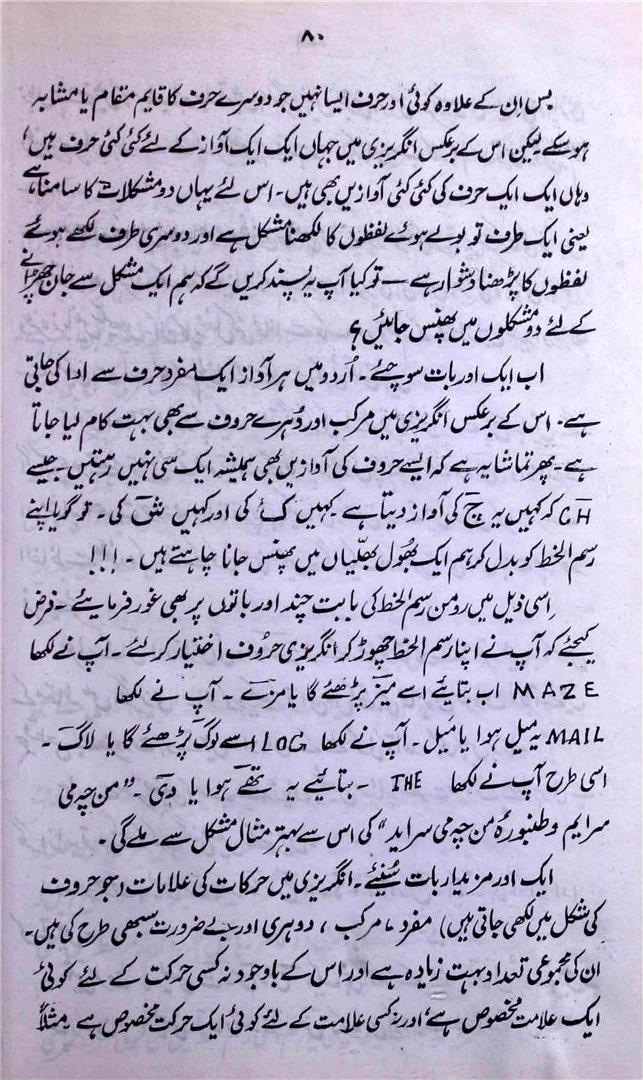 ۸۰
بس ان کے علاوہ کوئی اور حرف ایسا نہیں جو دوسرے حرف کا قایم مقام یا مشابہ
ہو سکے لیکن اس کے برعکس انگریزی میں جہاں ایک ایک آواز کے لئے کئی کئی حرف ہیں،
وہاں ایک ایک حرف کی کئی کئی آوازیں بھی ہیں۔ اس لئے یہاں دو مشکلات کا سامنا ہے
یعنی ایک طرف تو بولے ہوئے لفظوں کا لکھنا مشکل ہے اور دوسری طرف لکھے ہوئے
لفظوں کا پڑھنا دشوار ہے — تو کیا آپ یہ پسند کریں گے کہ ہم ایک مشکل سے جان چھڑانے
کے لئے دو مشکلوں میں پھنس جائیں؟
اب ایک اور بات سوچئے۔ اُردو میں ہر آواز ایک مفرد حرف سے ادا کی جاتی
ہے۔ اس کے برعکس انگریزی میں مرکب اور دُہرے حروف سے بھی بہت کام لیا جاتا
ہے۔ پھر تماشا یہ ہے کہ ایسے حروف کی آوازیں بھی ہمیشہ ایک سی نہیں رہتیں۔ جیسے
CH کہ کہیں یہ چ کی آواز دیتا ہے۔ کہیں ک کی اور کہیں ش کی۔ تو گویا اپنے
رسم الخط کو بدل کر ہم ایک بھُول بھلیاں میں پھنس جانا چاہتے ہیں۔!!!
اِسی ذیل میں رومن رسم الخط کی بابت چند اور باتوں پر بھی غور فرمایئے۔ فرض
کیجئے کہ آپ نے اپنا رسم الخط چھوڑ کر انگریزی حرُوف اختیار کر لئے۔ آپ نے لکھا
MAZE اب بتایئے اسے میز پڑھئے گا یا مزے۔ آپ نے لکھا
MAIL یہ میل ہوا یا مَیل۔ آپ نے لکھا LOG اسے لوگ پڑھئے گا یا لاگ۔
اسی طرح آپ نے لکھا THE ۔ بتائیے یہ تھے ہوا یا دی۔ ”من چہ می
سرایم و طنبورۂ من چہ می سراید“ کی اس سے بہتر مثال مشکل سے ملے گی۔
ایک اور مزیدار بات سُنیئے۔ انگریزی میں حرکات کی علامات (جو حروف
کی شکل میں لکھی جاتی ہیں) مفرد، مرکب، دوہری اور بے ضرورت سبھی طرح کی ہیں۔
ان کی مجموعی تعداد بہت زیادہ ہے اور اس کے باوجود نہ کسی حرکت کے لئے کوئی
ایک علامت مخصوص ہے، اور نہ کسی علامت کے لئے کوئی ایک حرکت مخصوص ہے۔ مثلاً